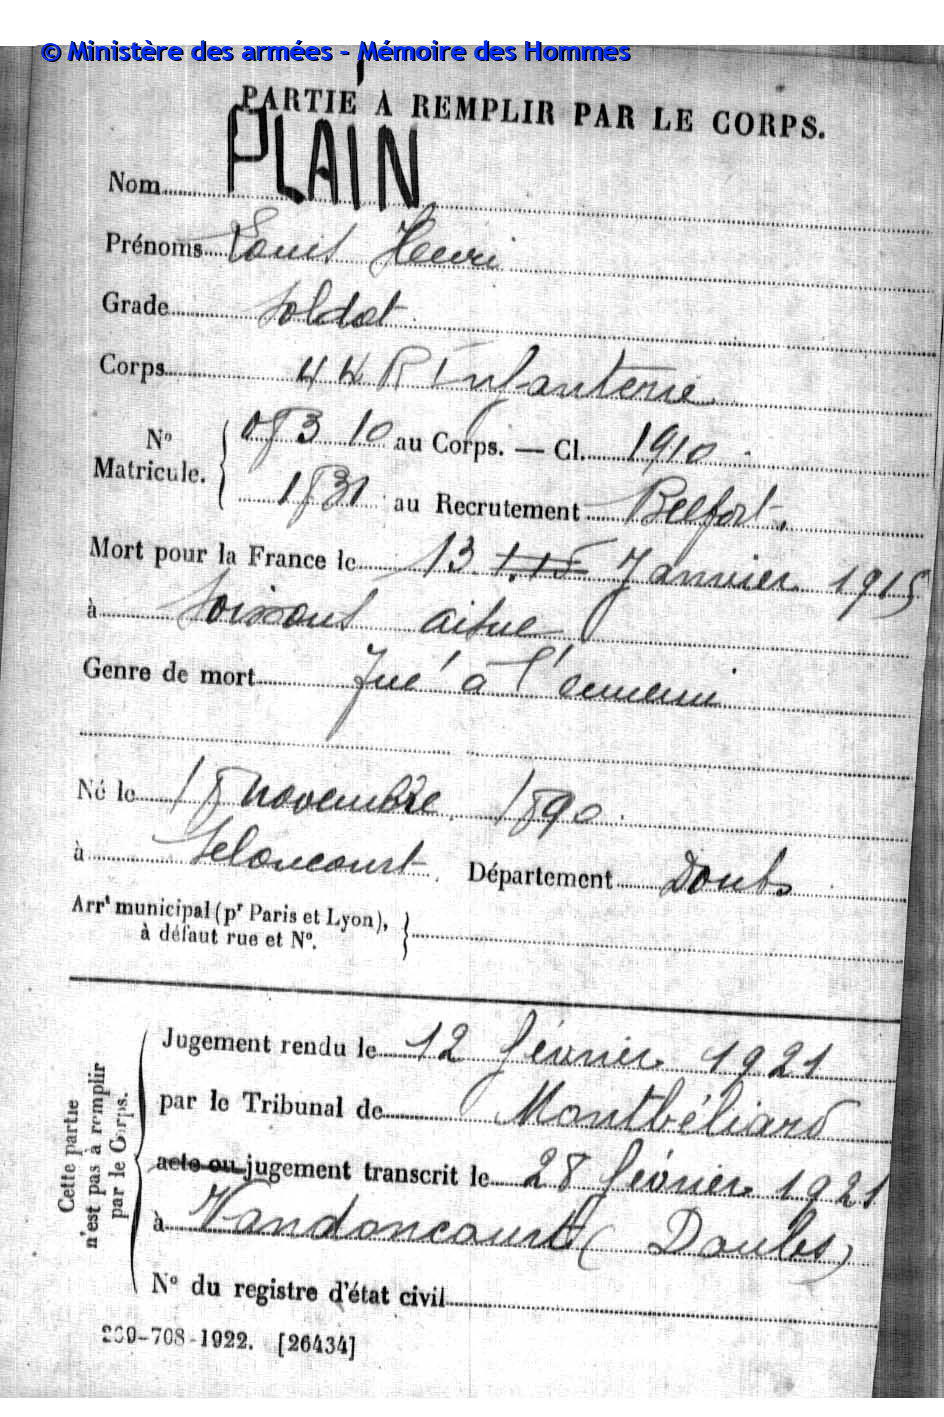 © Ministère des armées - Mémoire des Hommes
PARTIE À REMPLIR PAR LE CORPS.
Nom PLAIN
Prénoms Louis Henri
Grade Soldat
Corps 44 R Infanterie
N° Matricule. 0873 10 au Corps. — Cl. 1910
1831 au Recrutement Belfort.
Mort pour la France le 13 1.15 Janvier 1915
à Soissons aisne
Genre de mort Tué à l'ennemi
Né le 18 novembre 1890.
à Seloncourt. Département Doubs
Arrt municipal (pr Paris et Lyon),
à défaut rue et N°.
Cette partie
n'est pas à remplir
par le Corps.
Jugement rendu le 12 février 1921
par le Tribunal de Montbéliard
acte ou jugement transcrit le 28 février 1921
à Vandoncourt (Doubs)
N° du registre d'état civil
269-708-1922. [26434]